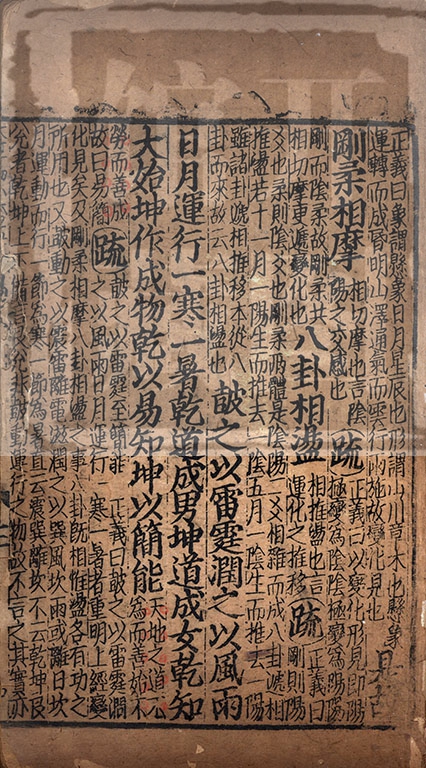 正義曰象謂縣象日月星辰也形謂山川草木也縣象
運轉而成昏明山澤通氣而雲行雨施故變化見也
剛柔相摩
相切摩也言陰
陽之交感也
疏
正義曰以變化形見即陽
極變為陰陰極變為陽陽
剛而陰柔故剛柔共
相切摩更遞變化也
八卦相盪
相推盪也言
運化之推移
疏
正義曰
剛則陽
爻也柔則陰爻也剛柔兩體是陰陽二爻相雜而成八卦遞相
推盪若十一月一陽生而推去一陰五月一陰生而推去一陽
雖諸卦遞相推移本從八
卦而來故云八卦相盪也
鼓之以雷霆潤之以風雨
日月運行一寒一暑乾道成男坤道成女乾知
大始坤作成物乾以易知坤以簡能
天地之道不
為而善始不
勞而善成
故曰易簡
疏
鼓之以雷霆至簡能 正義曰鼓之以雷霆潤
之以風雨日月運行一寒一暑者重明上經變
化見矣及剛柔相摩八卦相盪之事八卦既相推盪各有功之
所用也又鼓動之以震雷離電滋潤之以巽風坎雨或離日坎
月運動而行一節為寒一節為暑直云震巽離坎不云乾坤艮
兌者乾坤上下備言艮兌非鼓動運行之物故不言之其實亦